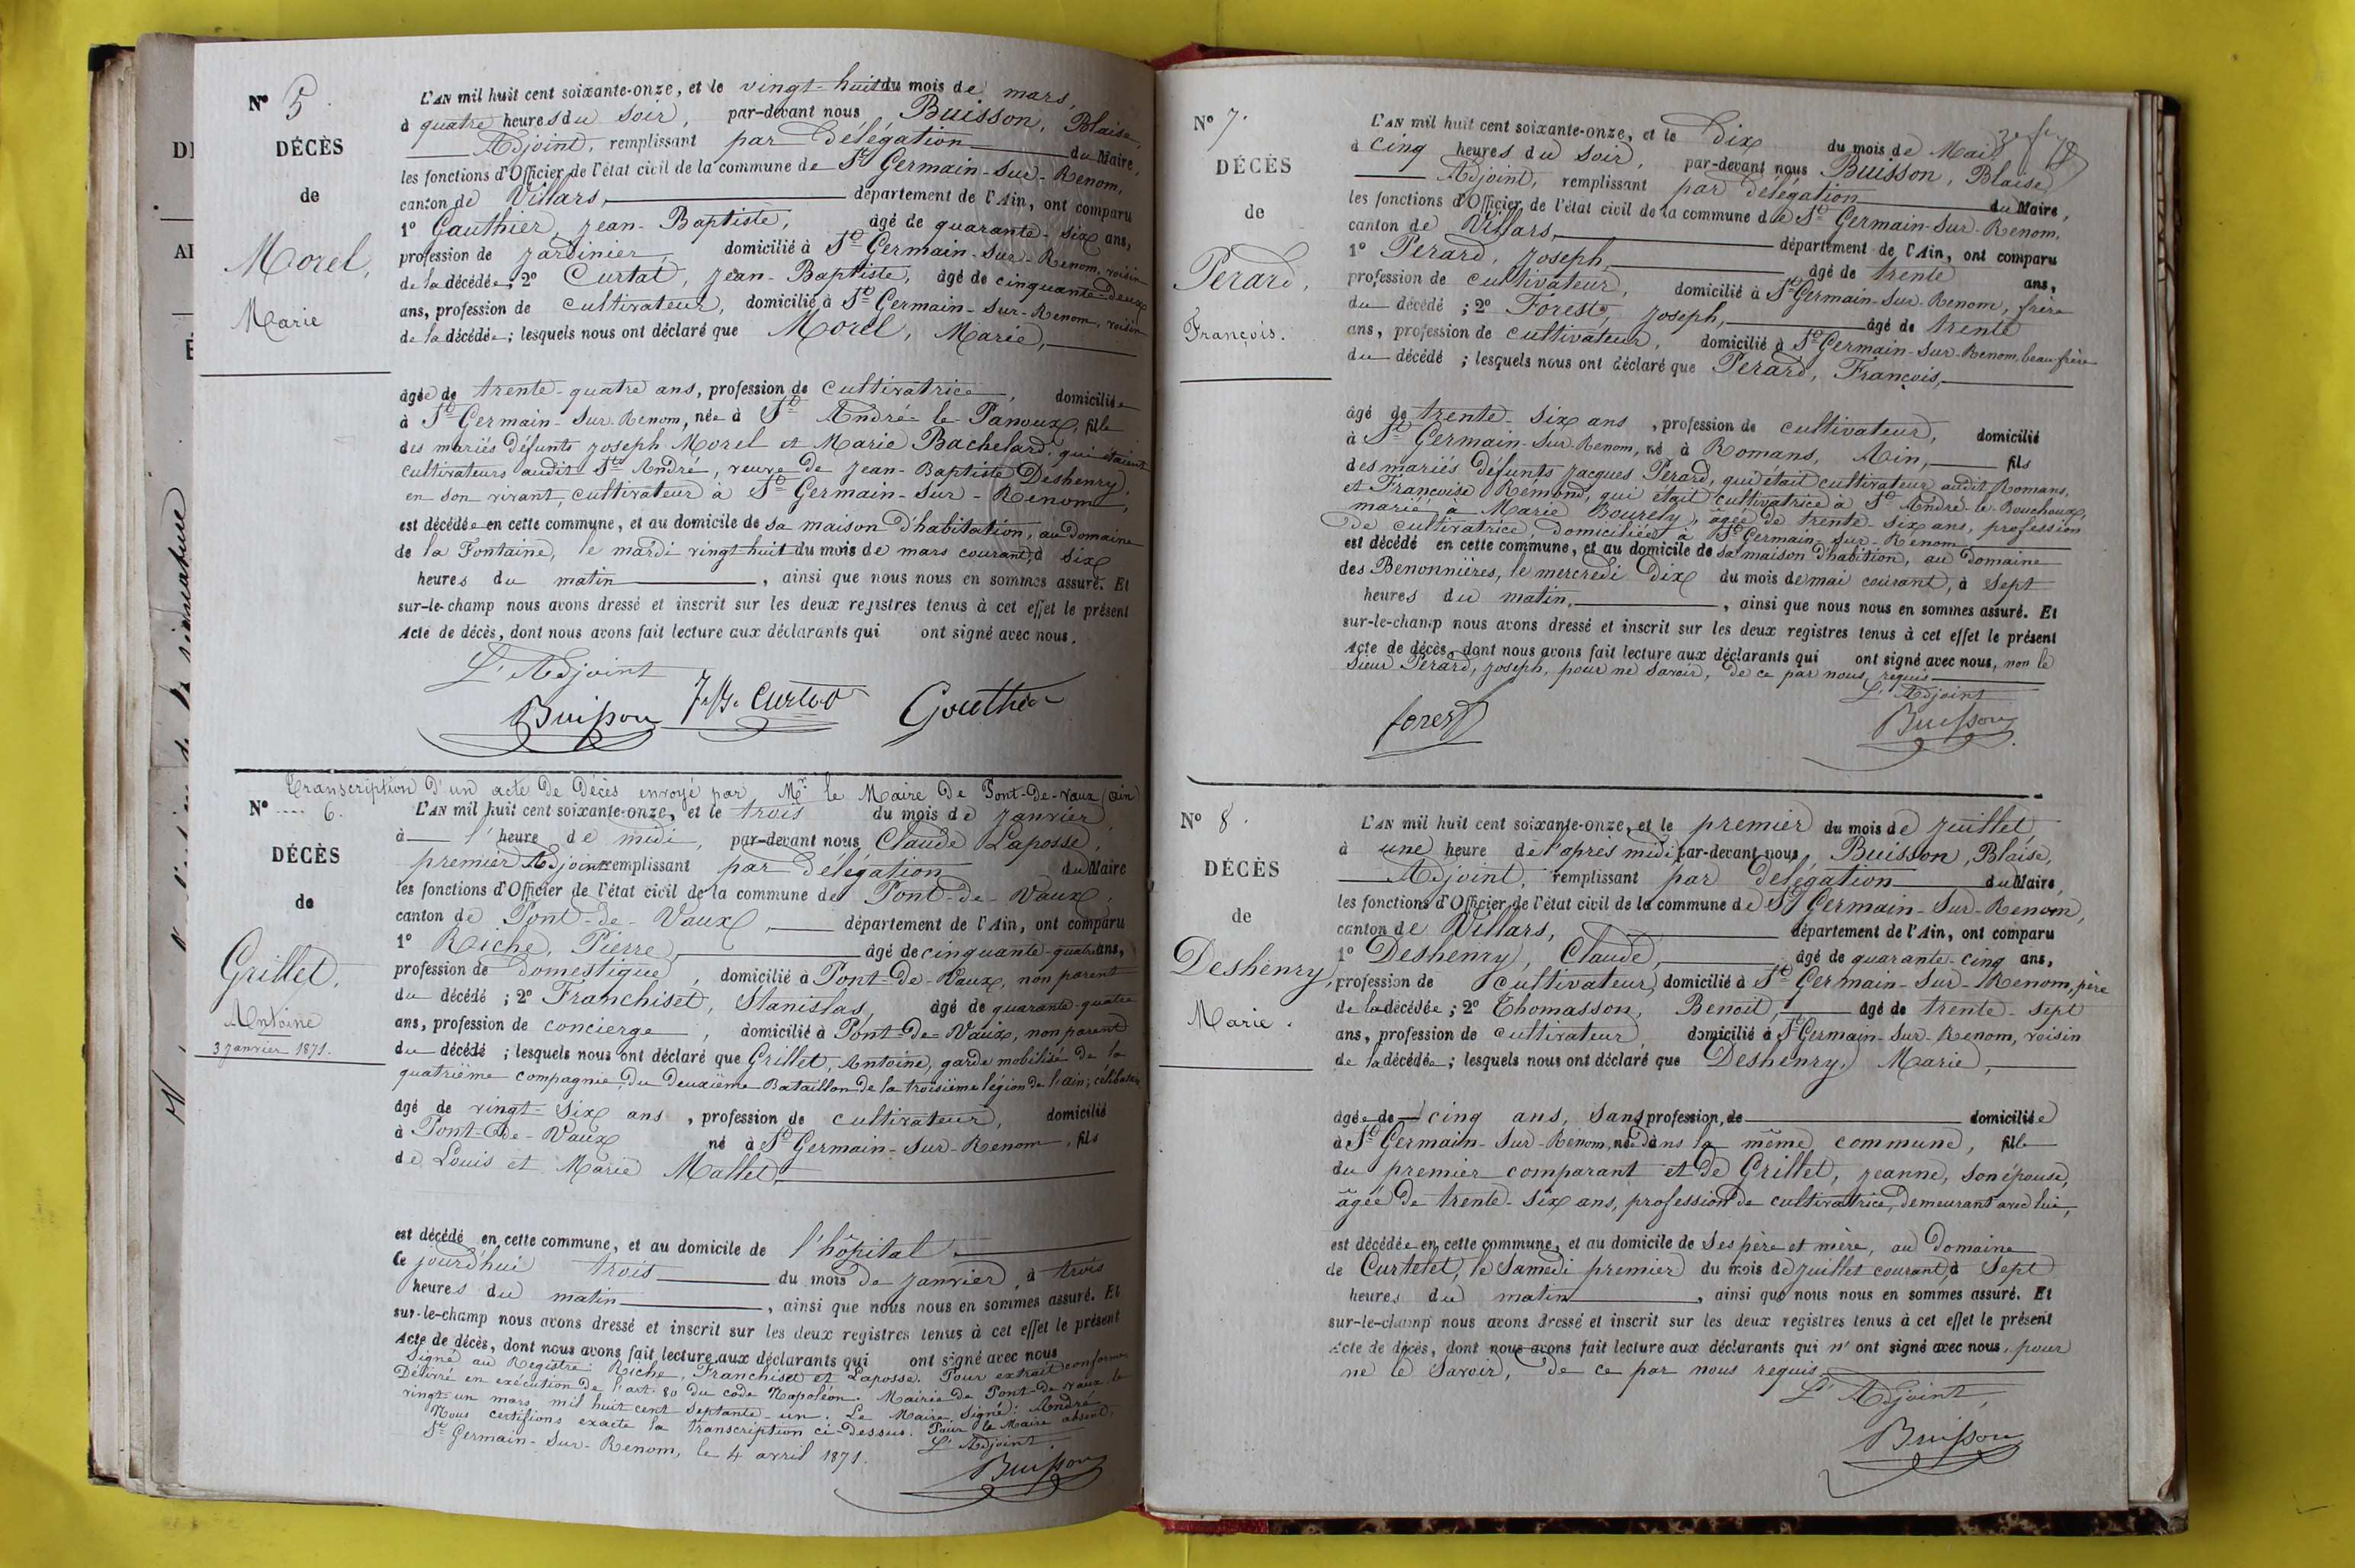 N° 5.
DÉCÈS
de
Morel,
Marie
L'AN mil huit cent soixante-onze, et le vingt-huit du mois de mars,
à quatre heures du soir, par-devant nous, Buisson, Blaise,
Adjoint, remplissant par délégation du Maire,
les fonctions d'Officier de l'état civil de la commune de St Germain-Sur-Renom,
canton de Villars, département de l'Ain, ont comparu
1° Gauthier, Jean-Baptiste, âgé de quarante-six ans,
profession de jardinier, domicilié à St Germain-Sur-Renom, voisin
de la décédée; 2° Curtat, Jean-Baptiste, âgé de cinquante-deux
ans, profession de cultivateur, domicilié à St Germain-Sur-Renom, voisin
de la décédée; lesquels nous ont déclaré que Morel, Marie,
âgée de trente-quatre ans, profession de cultivatrice, domiciliée
à St Germain-Sur-Renom, née à St André-le-Panoux, fille
des mariés défunts Joseph Morel et Marie Bachelard, qui étaient
cultivateurs audit St André, veuve de Jean-Baptiste Deshenry,
en son vivant, cultivateur à St Germain-Sur-Renom,
est décédée en cette commune, et au domicile de sa maison d'habitation, au domaine
de la Fontaine, le mardi vingt-huit du mois de mars courant, à six
heures du matin, ainsi que nous nous en sommes assuré. Et
sur-le-champ nous avons dressé et inscrit sur les deux registres tenus à cet effet le présent
Acte de décès, dont nous avons fait lecture aux déclarants qui ont signé avec nous.
L'Adjoint
Buisson J.B. Curtat Gauthier
Transcription d'un acte de Décès envoyé par Mr le Maire de Pont-de-Vaux (Ain)
N° 6.
DÉCÈS
de
Grillet,
Antoine
3 janvier 1871.
L'AN mil huit cent soixante-onze, et le trois du mois de janvier,
à l'heure de midi, par-devant nous Claude Laposse,
premier Adjoint remplissant par délégation du Maire
les fonctions d'Officier de l'état civil de la commune de Pont-de-Vaux,
canton de Pont-de-Vaux, département de l'Ain, ont comparu
1° Riche, Pierre, âgé de cinquante-quatre ans,
profession de domestique, domicilié à Pont-de-Vaux, non parent
du décédé; 2° Franchiset, Stanislas, âgé de quarante-quatre
ans, profession de concierge, domicilié à Pont-de-Vaux, non parent
du décédé; lesquels nous ont déclaré que Grillet, Antoine, garde mobilisé de la
quatrième compagnie du deuxième Bataillon de la troisième légion de l'ain, célibataire
âgé de vingt-six ans, profession de cultivateur, domicilié
à Pont-de-Vaux né à St Germain-Sur-Renom, fils
de Louis et Marie Mallet,
est décédé en cette commune, et au domicile de l'hôpital
ce jourd'hui trois du mois de janvier, à trois
heures du matin, ainsi que nous nous en sommes assuré. Et
sur-le-champ nous avons dressé et inscrit sur les deux registres tenus à cet effet le présent
Acte de décès, dont nous avons fait lecture aux déclarants qui ont signé avec nous
Signé au Registre: Riche, Franchiset et Laposse. Pour extrait conforme
Délivré en exécution de l'art. 80 du code Napoléon. Mairie de Pont-de-Vaux, le
vingt-un mars mil huit cent septante-un. Le Maire, Signé: André
Nous certifions exacte la transcription ci-dessus. Pour le Maire absent,
St Germain-Sur-Renom, le 4 avril 1871. L'Adjoint.
Buisson
N° 7.
DÉCÈS
de
Perard,
François.
L'AN mil huit cent soixante-onze, et le Dix du mois de Mai,
à cinq heures du soir, par-devant nous Buisson, Blaise
Adjoint, remplissant par délégation du Maire,
les fonctions d'Officier de l'état civil de la commune de St Germain-Sur-Renom,
canton de Villars, département de l'Ain, ont comparu
1° Perard, Joseph, âgé de trente ans,
profession de cultivateur, domicilié à St Germain-Sur-Renom, frère
du décédé; 2° Forest, Joseph, âgé de trente
ans, profession de cultivateur, domicilié à St Germain-Sur-Renom, beau-frère
du décédé; lesquels nous ont déclaré que Perard, François,
âgé de trente-six ans, profession de cultivateur, domicilié
à St Germain-Sur-Renom, né à Romans, Ain, fils
des mariés défunts Jacques Perard, qui était cultivateur audit Romans,
et Françoise Rémond, qui était cultivatrice à St André-le-Bouchoux,
marié à Marie Bourely, âgée de trente-six ans, profession
de cultivatrice, domiciliée à St Germain-sur-Renom
est décédé en cette commune, et au domicile de sa maison d'habition, au domaine
des Benonnières, le mercredi Dix du mois de mai courant, à sept
heures du matin, ainsi que nous nous en sommes assuré. Et
sur-le-champ nous avons dressé et inscrit sur les deux registres tenus à cet effet le présent
Acte de décès, dont nous avons fait lecture aux déclarants qui ont signé avec nous, non le
Sieur Perard, Joseph, pour ne savoir, de ce par nous requis
L'Adjoint
forest Buisson
N° 8.
DÉCÈS
de
Deshenry,
Marie.
L'AN mil huit cent soixante-onze, et le premier du mois de Juillet,
à une heure de l'après midi par-devant nous, Buisson, Blaise,
Adjoint, remplissant par délégation du Maire,
les fonctions d'Officier de l'état civil de la commune de St Germain-Sur-Renom,
canton de Villars, département de l'Ain, ont comparu
1° Deshenry, Claude, âgé de quarante-cinq ans,
profession de cultivateur, domicilié à St Germain-Sur-Renom, père
de la décédée; 2° Thomasson, Benoit, âgé de trente-sept
ans, profession de cultivateur, domicilié à St Germain-Sur-Renom, voisin
de la décédée; lesquels nous ont déclaré que Deshenry, Marie,
âgée de cinq ans, sans profession, de domiciliée
à St Germain-Sur-Renom, née dans la même commune, fille
du premier comparant et de Grillet, Jeanne, son épouse,
âgée de trente-six ans, profession de cultivatrice, demeurant avec lui,
est décédée en cette commune, et au domicile de ses père et mère, au domaine
de Curtelet, le Samedi premier du mois de juillet courant, à sept
heures du matin, ainsi que nous nous en sommes assuré. Et
sur-le-champ nous avons dressé et inscrit sur les deux registres tenus à cet effet le présent
Acte de décès, dont nous avons fait lecture aux déclarants qui n'ont signé avec nous, pour
ne le savoir, de ce par nous requis.
L'Adjoint,
Buisson